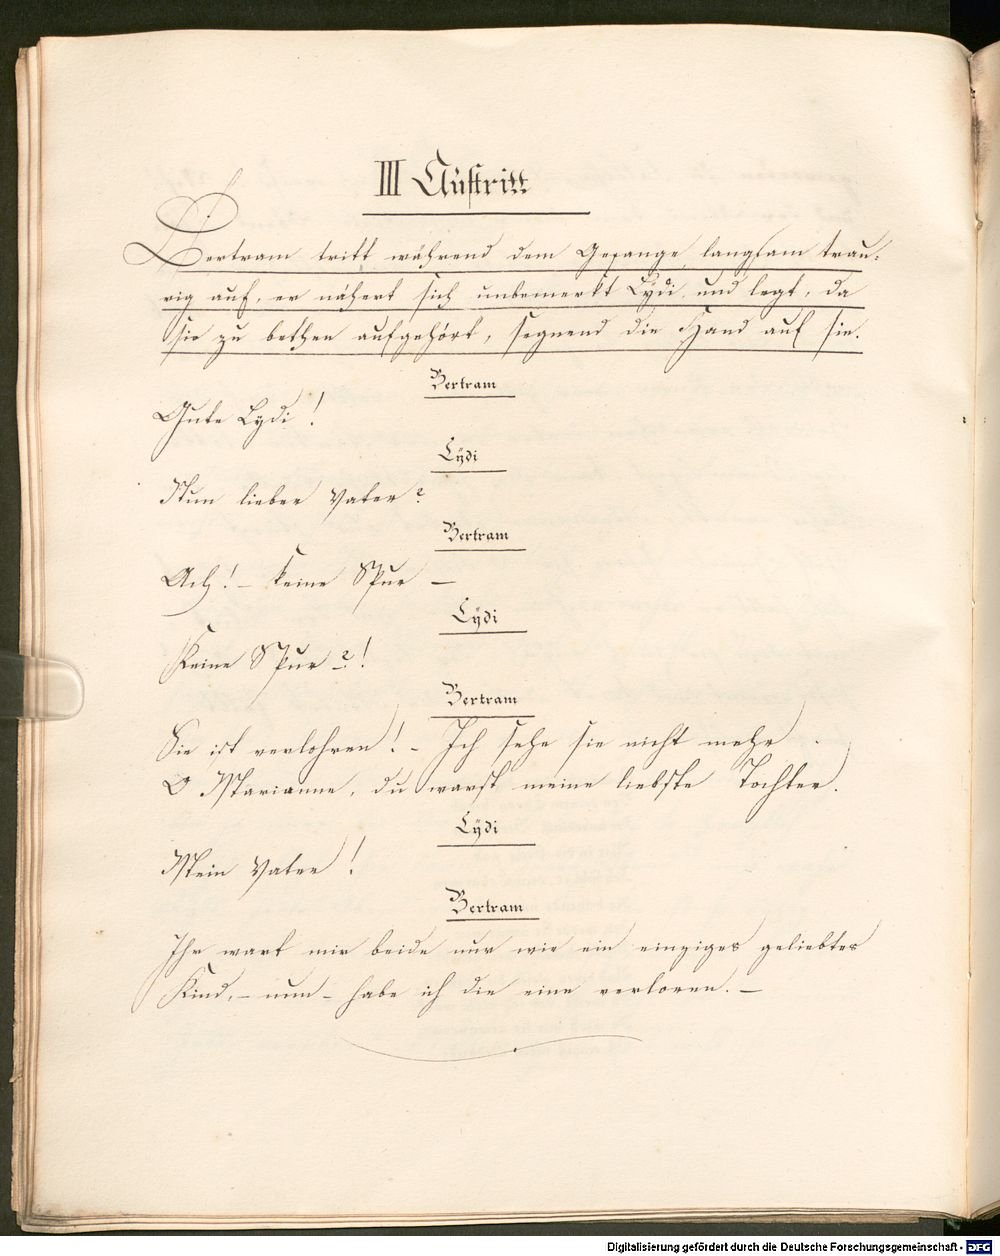 III Auftritt
Bertram tritt während dem Gesange langsam trau-
rig auf, er nähert sich unbemerkt Lÿdi und legt, da
sie zu bethen aufgehört, segnend die Hand auf sie.
Bertram
Gute Lydi!
Lÿdi
Nun lieber Vater?
Bertram
Ach! – keine Spur –
Lÿdi
Keine Spur –?!
Bertram
Sie ist verlohren! – Ich sehe sie nicht mehr.
O Marianne, du warst meine liebste Tochter.
Lÿdi
Mein Vater!
Bertram
Ihr wart mir beide nur wie ein einziges geliebtes
Kind, – nun – habe ich die eine verloren. –
Digitalisierung gefördert durch die Deutsche Forschungsgemeinschaft - DFG